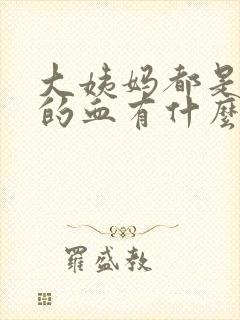 大姨妈都是
的血有什麽
羅盛教